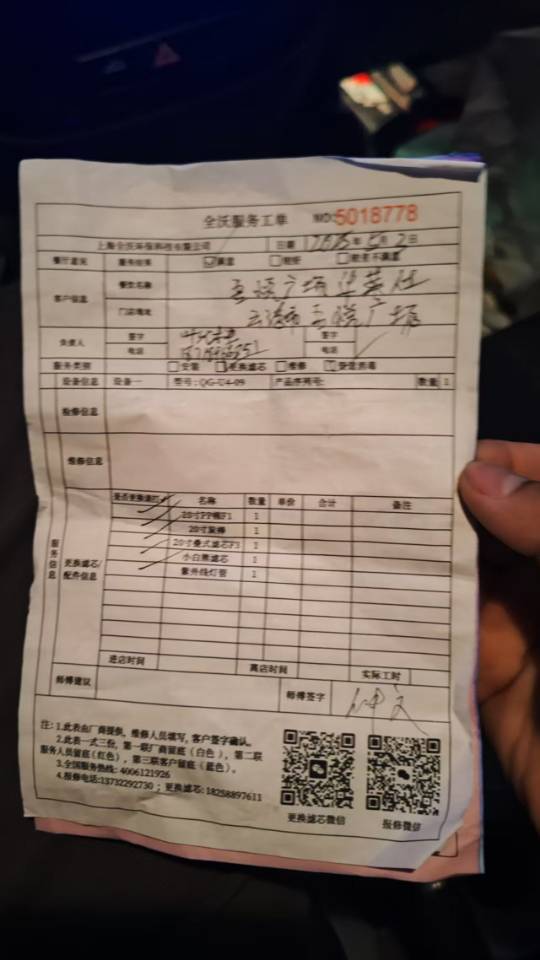 全沃服务工单 NO:5018778
上海全沃环保科技有限公司 日期 年5月2日
餐厅意见 服务结果 ☑满意 □较好 □较差不满意
客户信息 餐饮名称
门店地址 广场
负责人 签字 签字
电话 电话
服务类别 □安装 ☑更换滤芯 □维修
设备信息 设备一 型号：QG-U4-09 产品序列号： 数量 1
检修信息
维修信息
服务信息
更换滤芯/配件信息
名称 数量 单价 合计 备注
20寸PP棉F1 1
20寸 1
20寸叠式滤芯F3 1
小白熊滤芯 1
紫外线灯管 1
进店时间 离店时间 实际工时
师傅建议 师傅签字
注：1.此表由厂商提供，维修人员填写，客户签字确认。
2.此表一式三份，第一联厂商留底（白色），第二联
服务人员留底(红色)，第三联客户留底（蓝色）。
3.全国服务热线：4006121926
4.报修电话:13732292730；更换滤芯:18258897611
更换滤芯微信 报修微信